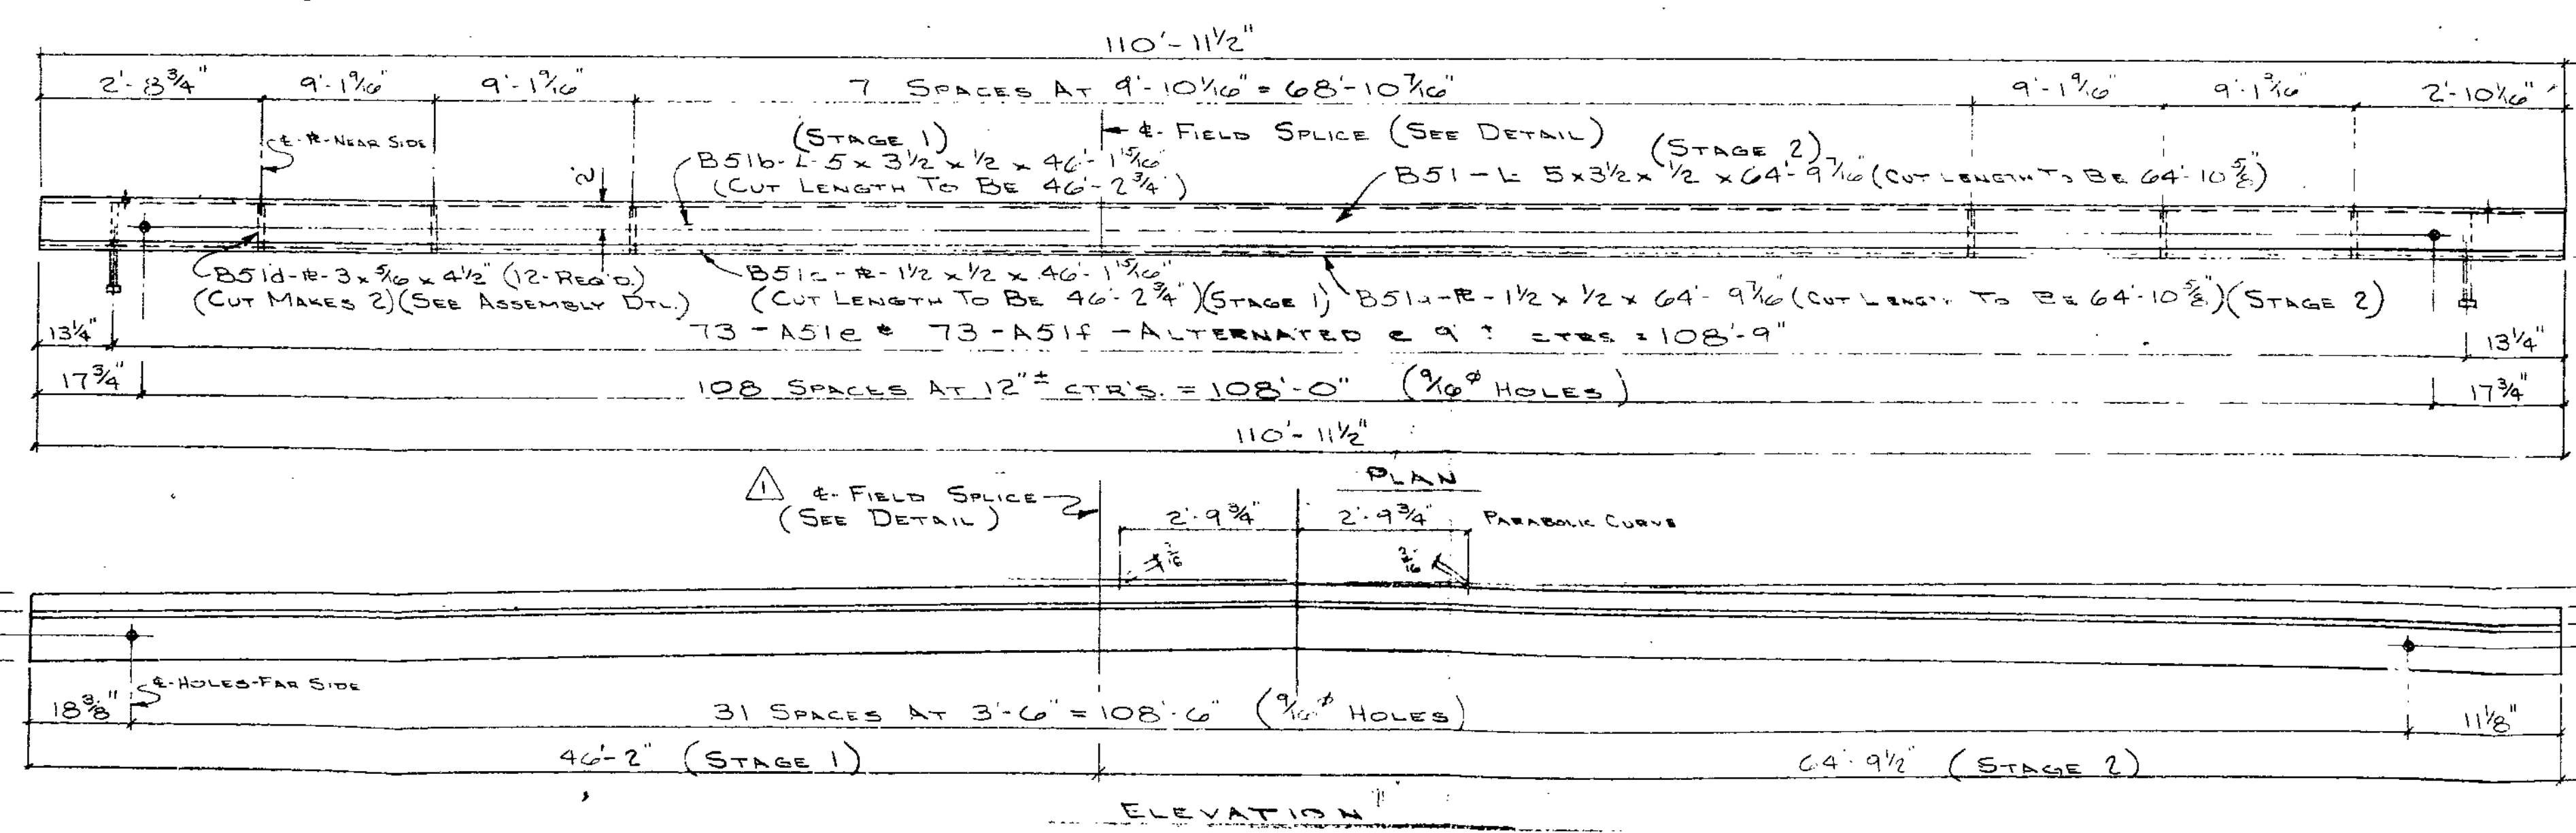 110'-11 1/2"
2'-8 3/4" 9'-1 9/16" 9'-1 9/16" 7 SPACES AT 9'-10 1/16" = 68'-10 7/16" 9'-1 9/16" 9'-1 9/16" 2'-10 1/16"
℄-℞-NEAR SIDE
℄-FIELD SPLICE (SEE DETAIL)
(STAGE 1)
B51b-L-5 x 3 1/2 x 1/2 x 46'-1 15/16"
(CUT LENGTH TO BE 46'-2 3/4")
(STAGE 2)
B51-L 5x3 1/2 x 1/2 x 64'-9 7/16" (CUT LENGTH TO BE 64'-10 5/8")
2"
B51d-℞-3 x 5/16 x 4 1/2" (12-REQ'D.)
(CUT MAKES 2)(SEE ASSEMBLY DTL.)
B51c-℞-1 1/2 x 1/2 x 46'-1 15/16"
(CUT LENGTH TO BE 46'-2 3/4")(STAGE 1)
B51a-℞-1 1/2 x 1/2 x 64'-9 7/16" (CUT LENGTH TO BE 64'-10 5/8")(STAGE 2)
13 1/4" 73-A51e & 73-A51f-ALTERNATED @ 9" ± CTRS = 108'-9" 13 1/4"
17 3/4" 108 SPACES AT 12"± CTR'S. = 108'-0" (9/16"ø HOLES) 17 3/4"
110'-11 1/2"
PLAN
1 ℄-FIELD SPLICE
(SEE DETAIL)
2'-9 3/4" 2'-9 3/4" PARABOLIC CURVE
3/16 3/16
℄-HOLES-FAR SIDE
18 3/8" 31 SPACES AT 3'-6" = 108'-6" (9/16"ø HOLES) 11 1/8"
46'-2" (STAGE 1) 64'-9 1/2" (STAGE 2)
ELEVATION